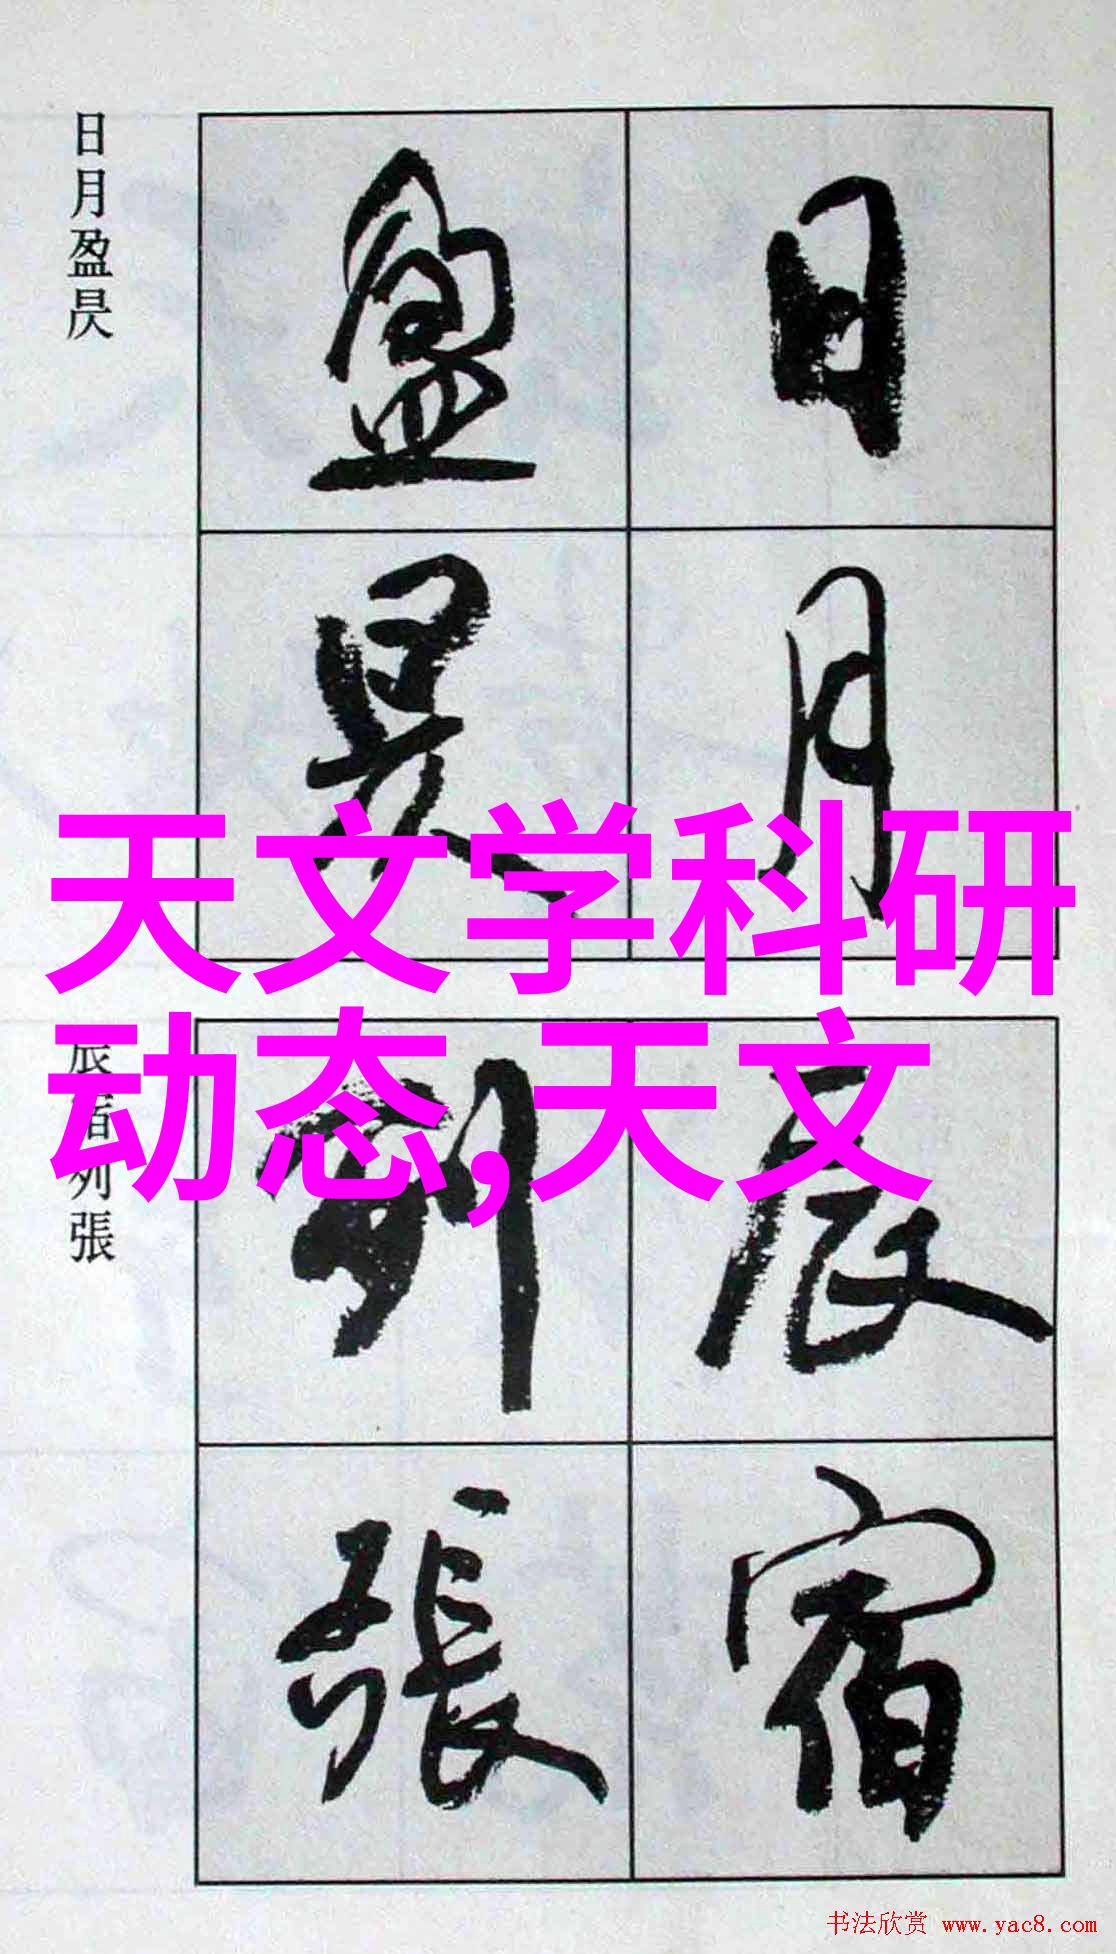 日月盈昃
日月
盈昃
天文学科研
动态,天文
辰宿列張
辰宿
列張
书法欣赏 www.yac8.com